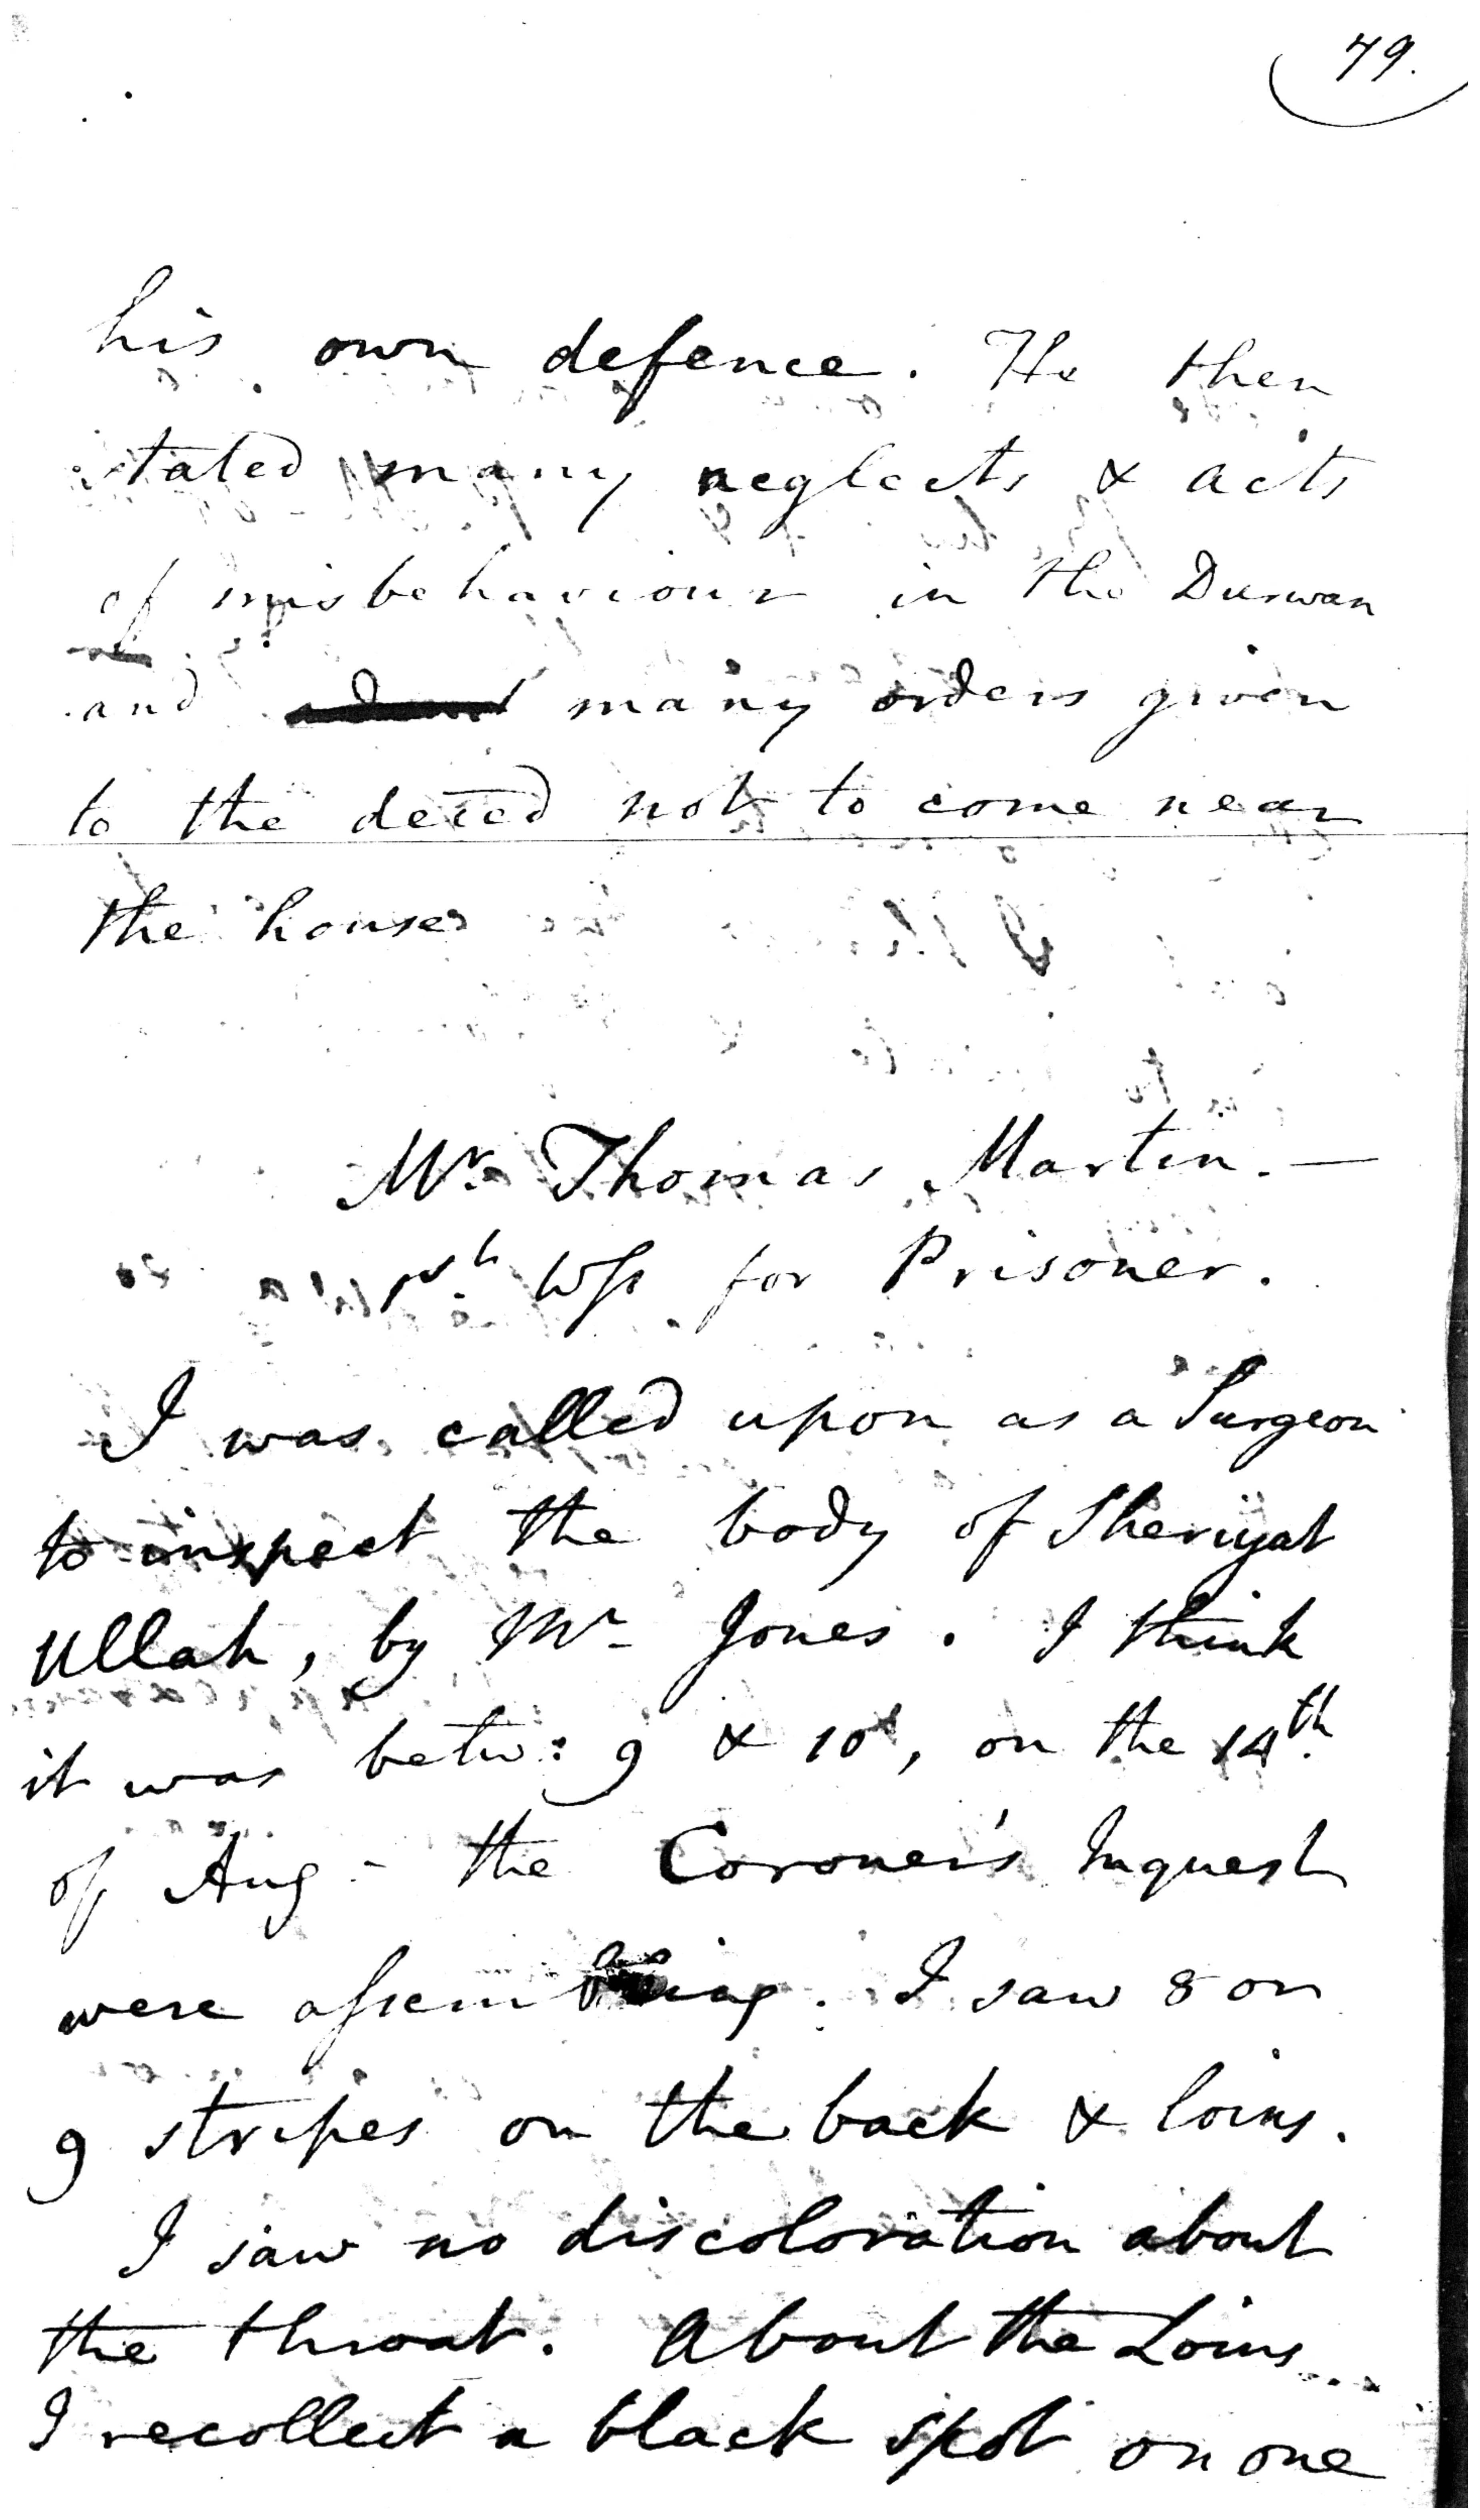 79.
his own defence. He then
stated many neglects & acts
of misbehaviour in the Durwan
and many orders given
to the deced not to come near
the house
Mr. Thomas Martin. —
1st. Wss for Prisoner.
I was called upon as a Surgeon
to inspect the body of Sheriyat
Ullah, by Mr Jones. I think
it was betw: 9 & 10, on the 14th.
of Aug - the Coroner's Inquest
were assembling. I saw 8 or
9 stripes on the back & loins.
I saw no discoloration about
the throat. About the Loins
I recollect a black spot on one